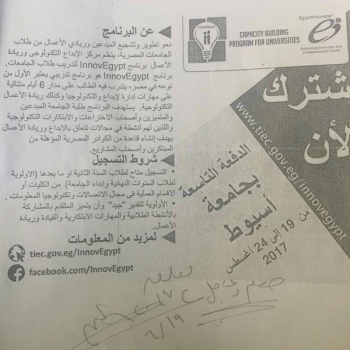 CAPACITY BUILDING
PROGRAM FOR UNIVERSITIES
Egypt
اشترك
الأن
www.tiec.gov.eg/innovegypt
الدفعة التاسعة
بجامعة
أسيوط
من 19 إلى 24 أغسطس
2017
عن البرنامج
نحو تطوير وتشجيع المبدعين وريادي الأعمال من طلاب
الجامعات المصرية، ينظم مركز الإبداع التكنولوجي وريادة
الأعمال برنامج InnovEgypt لتدريب طلاب الجامعات.
برنامج InnovEgypt هو برنامج تدريبي يعتبر الأول من
نوعه في مصر، يتدرب فيه الطالب على مدار 6 أيام متتالية
على مهارات إدارة الإبداع والتكنولوجيا وكذلك ريادة الأعمال
التكنولوجية. يستهدف البرنامج طلبة الجامعة المبدعين
والمتميزين وأصحاب الاختراعات والابتكارات التكنولوجية
والذين لهم أنشطة في مجالات تتعلق بالإبداع وريادة الأعمال
بهدف إنشاء قاعدة من الكوادر المصرية المؤهلة من
المبتكرين وأصحاب المشاريع.
شروط التسجيل
- التسجيل متاح لطلاب السنة الثانية أو ما بعدها (الأولوية
لطلاب السنوات النهائية وأبناء الجامعة) من الكليات أو
الأقسام العملية في مجال الاتصالات وتكنولوجيا المعلومات.
- الأولوية لتقدير "جيد" وأن يتميز المتقدم بالمشاركة
بالأنشطة الطلابية والمهارات الابتكارية والقيادة وريادة
الأعمال.
لمزيد من المعلومات
tiec.gov.eg/InnovEgypt
facebook.com/InnovEgypt